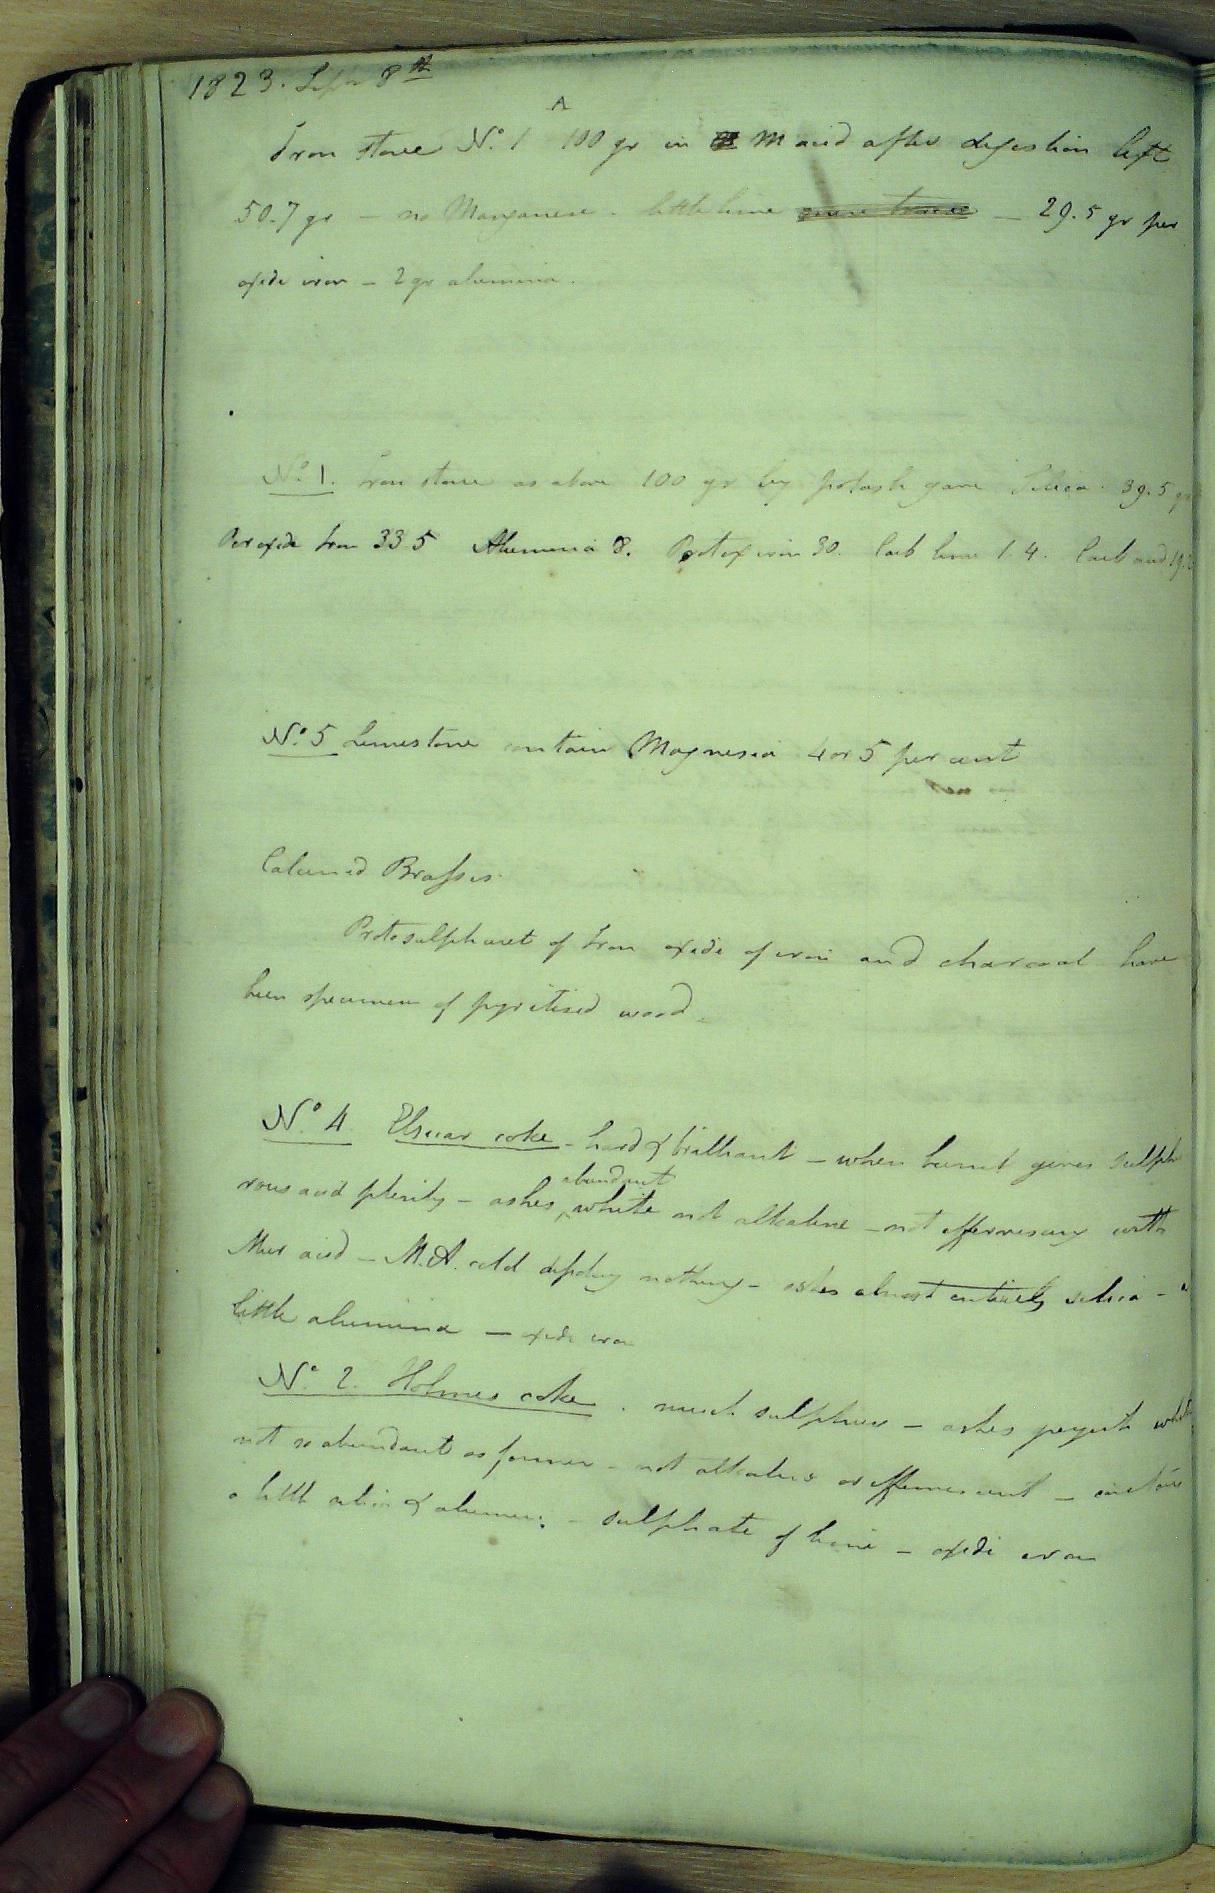 1823. Sep 8th
A
Iron stone No. 1 100 gr in M acid after digestion left
50.7 gr - no Manganese - little lime - 29.5 gr per
oxide iron - 2 gr alumina.
No 1. Iron stone as above 100 gr by potash gave Silica 39.5 gr
Peroxide Iron 33 5 Alumina 8. Protox iron 30. Carb lime 1.4. Carb acid 19.
No. 5 Limestone contain Magnesia 4 or 5 per cent
Calcined Brasses
Protosulphuret of Iron oxide of iron and charcoal have
been specimen of pyritised wood.
No. 4 Elsecar coke - hard & brilliant - when burnt gives sulph
abundant
rous acid plenty - ashes, white not alkaline - not effervescing with
Mur acid - M.A. cold dissolving nothing - ashes almost entirely silica - a
little alumina - oxide iron
No. 2. Holmes coke. much sulphur - ashes greyish white
not so abundant as former - not alkaline or effervescent - contain
a little silica & alumina - sulphate of lime - oxide iron